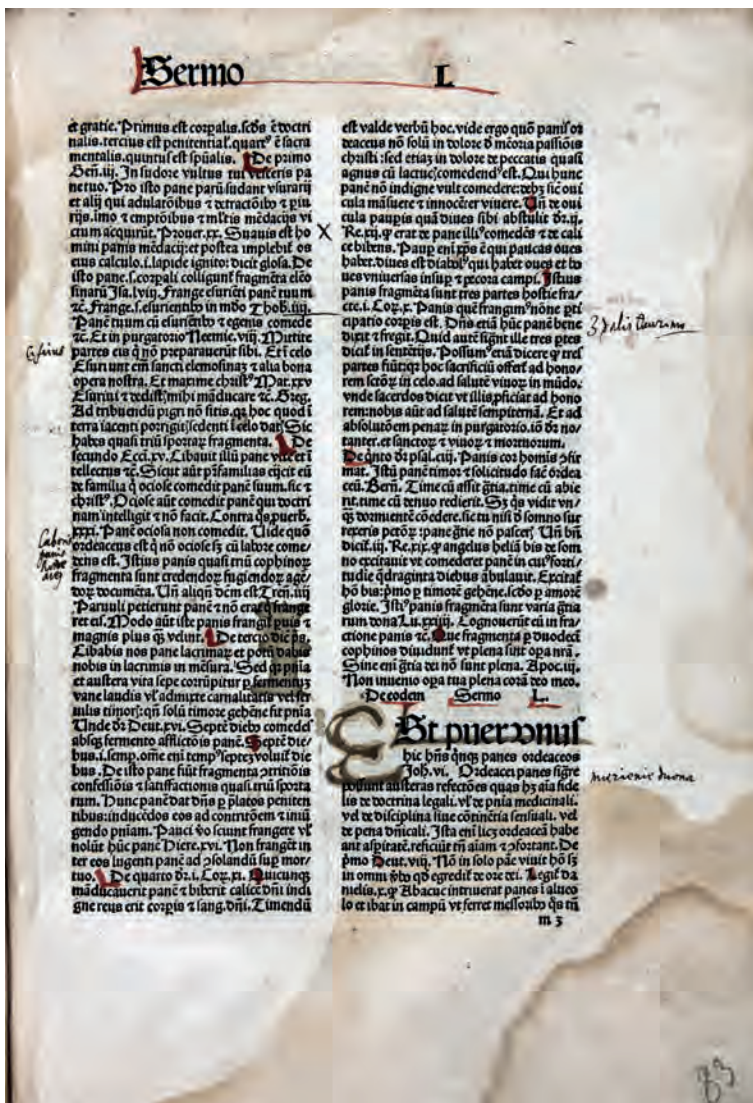 Sermo L
et gratie. Primus est corpalis. scds ē doctri
nalis. tercius est penitential'. quartꝰ ē sacra
mentalis. quintus est spūalis. De primo
Gen̄. iij. In sudore vultus tui vesceris pa
ne tuo. Pro isto pane parū sudant vsurarij
et alij qui adulatōibus ⁊ detractōibꝰ ⁊ ꝑiu
rijs. imo ⁊ emptōibus ⁊ mltis mēdacijs vi
ctum acquirūt. Prouer. xx. Suauis est ho
mini panis mēdacij: et postea implebit̄ os
eius calculo. i. lapide ignito: dicit glosa. De
isto pane. s. corpali colligunt̄ fragmēta eleō
sinarū Isa. lviij. Frange esuriēti panē tuum
⁊c. Frange. s. esurientibꝰ in mūdo Thob. iiij.
Panē tuum cū esuriētibꝰ ⁊ egenis comede
⁊c. Et in purgatorio Neemie. viij. Mittite
partes eis q̄ nō preparauerūt sibi. Et ī celo
Esuriunt em̄ sancti elemosinas ⁊ alia bona
opera nostra. Et maxime christꝰ Mat. xxv
Esuriui ⁊ dedist̄ꝭ mihi māducare ⁊c. Greg.
Ad tribuendū pigri nō sitis. qꝛ hoc quod ī
terra iacenti porrigit̄ sedenti ī celo dat̄. Sic
habes quasi triū sportaꝝ fragmenta. De
secundo Ecci. xv. Cibauit illū pane vite et ī
tellectus ⁊c. Sicut aūt pr̄familias eijcit eū
de familia q̄ ociose comedit panē suum. sic ⁊
christꝰ. Ociose aūt comedit panē qui doctri
nam intelligit ⁊ nō facit. Contra qs̄ ꝓuerb.
xxxi. Panē ociosa non comedit. Vide quō
ordeaceus est q̄ nō ociose sꝫ cū labore come/
dens est. Istius panis quasi triū cophinoꝝ
fragmenta sunt credendoꝝ fugiendoꝝ agē/
doꝝ documēta. Un̄ aliqn̄ dēm est Tren̄. iiij
Paruuli petierunt panē ⁊ nō erat q̄ frange
ret eis. Modo aūt iste panis frangit̄ ꝑuis ⁊
magnis plus q̄ velint. De tercio dic̄ ps̄.
Cibabis nos pane lacrimaꝝ et potū dabis
nobis in lacrimis in mēsura. Sed qꝛ pn̄ia
et austera vita sepe corrūpitur ꝑ fermentū
vane laudis vl̓ admixte carnalitatis vel ser
uilis timorꝭ: qn̄ solū timore gehēne fit pn̄ia
Unde dꝛ Deut. xvi. Septē diebꝰ comedes
absqꝫ fermento afflictōis panē. Septē die/
bus. i. semp. ome em̄ tempꝰ septeꝫ voluit̄ die
bus. De isto pane fiūt fragmenta ꝯtritiōis
confessiōis ⁊ satisfactionis quasi triū sporta
rum. Hunc panē dat dn̄s ꝑ platos peniten
tibus: inducēdos eos ad contritōem ⁊ iniū
gendo pniam. Pauci vo̓ sciunt frangere vl̓
nolūt hūc panē Hiere. xvi. Non frangēt in
ter eos lugenti panē ad ꝯsolandū suꝑ mor/
tuo. De quarto dꝛ. i. Coꝝ. xi. Quicunqꝫ
māducauerit panē ⁊ biberit calicē dn̄i indi
gne reus erit corpis ⁊ sang. dn̄i. Timendū
est valde verbū hoc. vide ergo quō panis or
deaceus nō solū in dolore ⁊ mēoria passiōis
christi: sed etiaꝫ in dolore de peccatis quasi
agnus cū lactucꝭ comedendꝰ est. Qui hunc
panē nō indigne vult comedere: debꝫ sic̄ oui
cula māsuere ⁊ innocēter viuere. Un̄ de oui
cula paupis quā diues sibi abstulit dꝛ. ij.
Re. xij. ꝙ erat de pane illiꝰ comedēs ⁊ de cali
ce bibens. Paup em̄ xp̄s ē qui paucas oues
habet. diues est diabolꝰ qui habet oues et bo
ues vniuersas insuꝑ ⁊ pecora campi. Istius
panis fragmēta sunt tres partes hostie fra/
cte. i. Coꝝ. x. Panis quē frangimꝰ nōne ꝑti
cipatio corpis est. Dn̄s etiā hūc panē bene
dixit ⁊ fregit. Quid autē signt̄ ille tres ꝑtes
dicit̄ in sentētijs. Possumꝰ etiā dicere ꝙ tres
partes fiūt: qꝛ hoc sacrificiū offert̄ ad hono/
rem sctōꝝ in celo. ad salutē viuoꝝ in mūdo.
vnde sacerdos dicit vt illis ꝓficiat ad hono
rem: nobis aūt ad salutē sempiternā. Et ad
absolutōem penaꝝ in purgatorio. iō dꝛ no/
tanter. et sanctoꝝ ⁊ viuoꝝ ⁊ mortuorum.
De q̄nto dꝛ psal. ciij. Panis cor homis ꝯfir
mat. Istū panē timor ⁊ solicitudo fac̄ ordea
ceū. Bern̄. Time cū assit gr̄ia. time cū abie
rit. time cū denuo redierit. Sꝫ qs̄ vidit vn̄/
q̄ꝫ dormientē cōedere. sic tu nisi d̄ somno sur
rexeris pctōꝝ: pane gr̄tie nō pascerꝭ. Un̄ bn̄
dicit̄. iij. Re. xix. ꝙ angelus heliā bis de som
no excitauit vt comederet panē in cuiꝰ forti/
tudie q̄draginta diebus ābulauit. Excitat̄
hō bis: pmo ꝑ timorē gehēne. scdo ꝑ amorē
glorie. Istiꝰ panis fragmēta sunt varia gr̄ia
rum dona Lu. xxiiij. Cognouerūt eū in fra/
ctione panis ⁊c. Que fragmenta ꝑ duodecī
cophinos diuidunt̄ vt plena sint oꝑa nr̄a.
Sine em̄ gr̄tia dei nō sunt plena. Apoc. iij.
Non inuenio oꝑa tua plena corā deo meo.
De eodem Sermo L.
Est puer vnus
hic hn̄s q̄nqꝫ panes ordeaceos
Joh. vi. Ordeacei panes sigr̄e
possunt austeras refectōes quas hꝫ aīa fide
lis de doctrina legali. vl̓ de pn̄ia medicinali.
vel de disciplina siue cōtinētia sensuali. vel
de pena dn̄icali. Ista em̄ licꝫ ordeaceā habe
ant aspitatē. reficiūt tn̄ aīam ⁊ ꝯfortant. De
pmo Deut. viij. Nō in solo pāe viuit hō sꝫ
in omni ꝟbo qd̄ egredit̄ de ore dei. Legit̄ da
nielis. x. ꝙ Abacuc intriuerat panes ī alueo
lo et ibat in campū vt ferret messoribꝰ qs̄ tn̄
m 3
X
panis
83